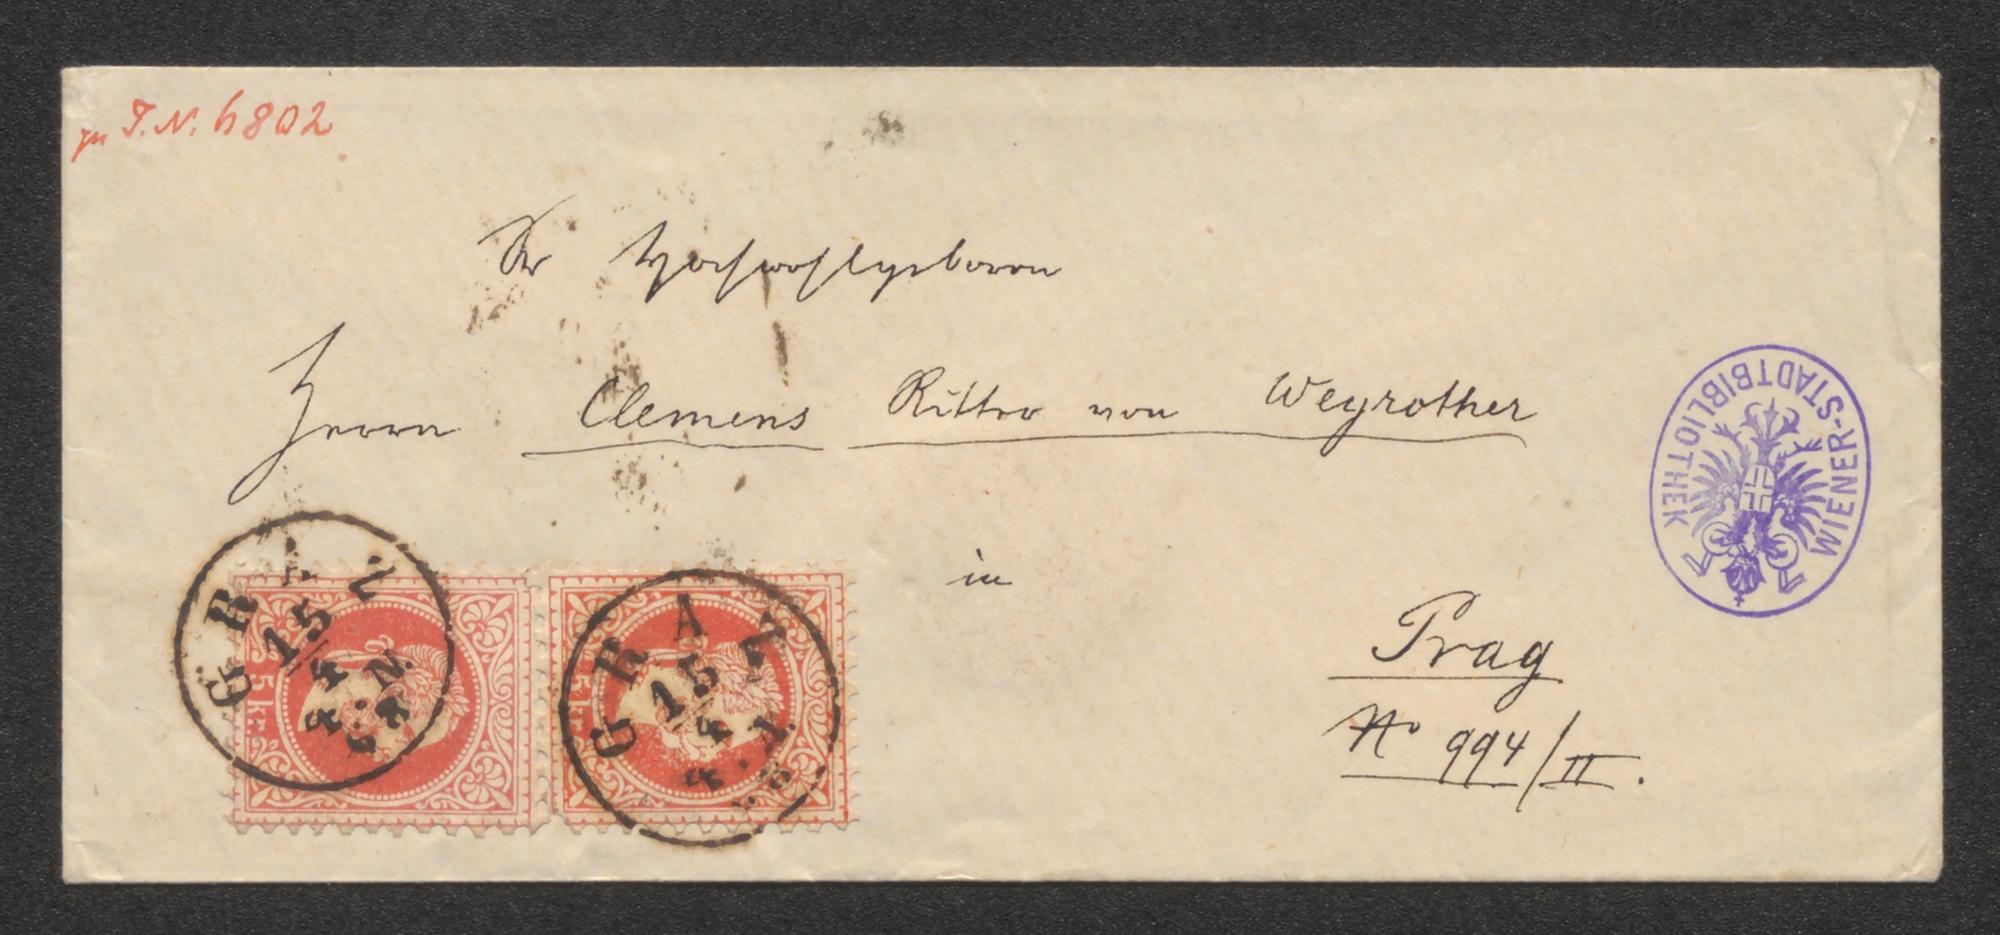 zu I.N. 6802
Sr Hochwohlgeboren
Herrn Clemens Ritter von Weyrother
in
Prag
No 994/II.
WIENER-STADTBIBLIOTHEK
GRAZ
15
4
4. N.
5 kr
GRAZ
15
4
4.
5 kr